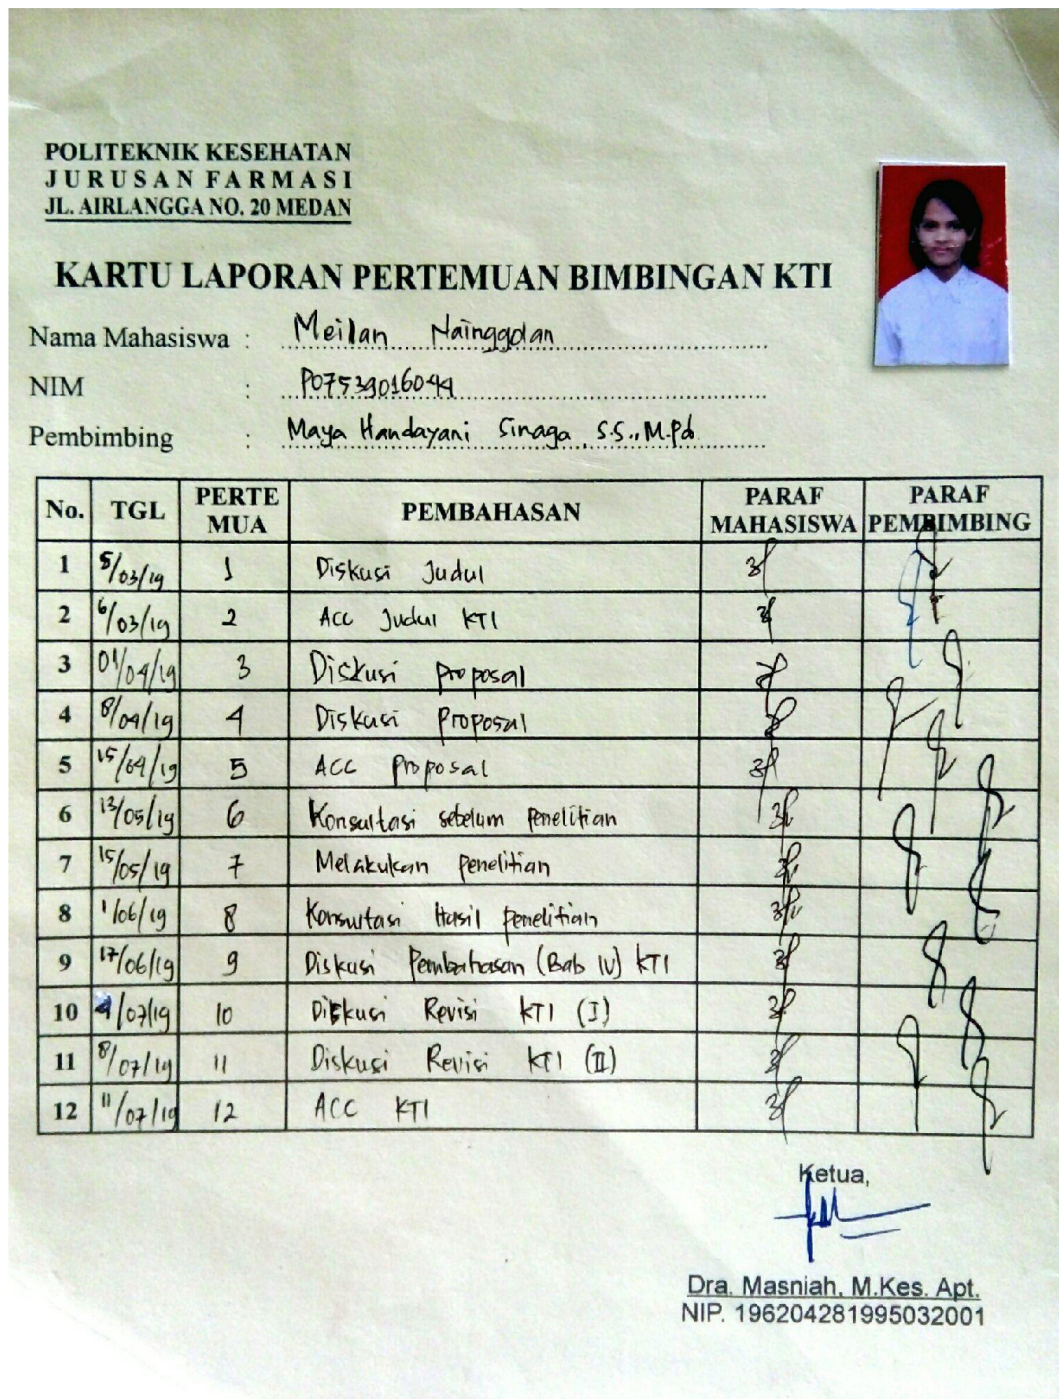 POLITEKNIK KESEHATAN
JURUSAN FARMASI
JL. AIRLANGGA NO. 20 MEDAN
KARTU LAPORAN PERTEMUAN BIMBINGAN KTI
Nama Mahasiswa : Meilan Nainggolan
NIM : P07539016044
Pembimbing : Maya Handayani Sinaga, S.S., M.Pd
No. TGL PERTE MUA PEMBAHASAN PARAF MAHASISWA PARAF PEMBIMBING
1 5/03/19 1 Diskusi Judul
2 6/03/19 2 Acc Judul KTI
3 01/04/19 3 Diskusi proposal
4 8/04/19 4 Diskusi Proposal
5 15/04/19 5 ACC Proposal
6 13/05/19 6 Konsultasi sebelum Penelitian
7 15/05/19 7 Melakukan Penelitian
8 1/06/19 8 Konsultasi Hasil Penelitian
9 17/06/19 9 Diskusi Pembahasan (Bab IV) KTI
10 4/07/19 10 Diskusi Revisi KTI (I)
11 8/07/19 11 Diskusi Revisi KTI (II)
12 11/07/19 12 ACC KTI
Ketua,
Dra. Masniah, M.Kes. Apt.
NIP. 196204281995032001